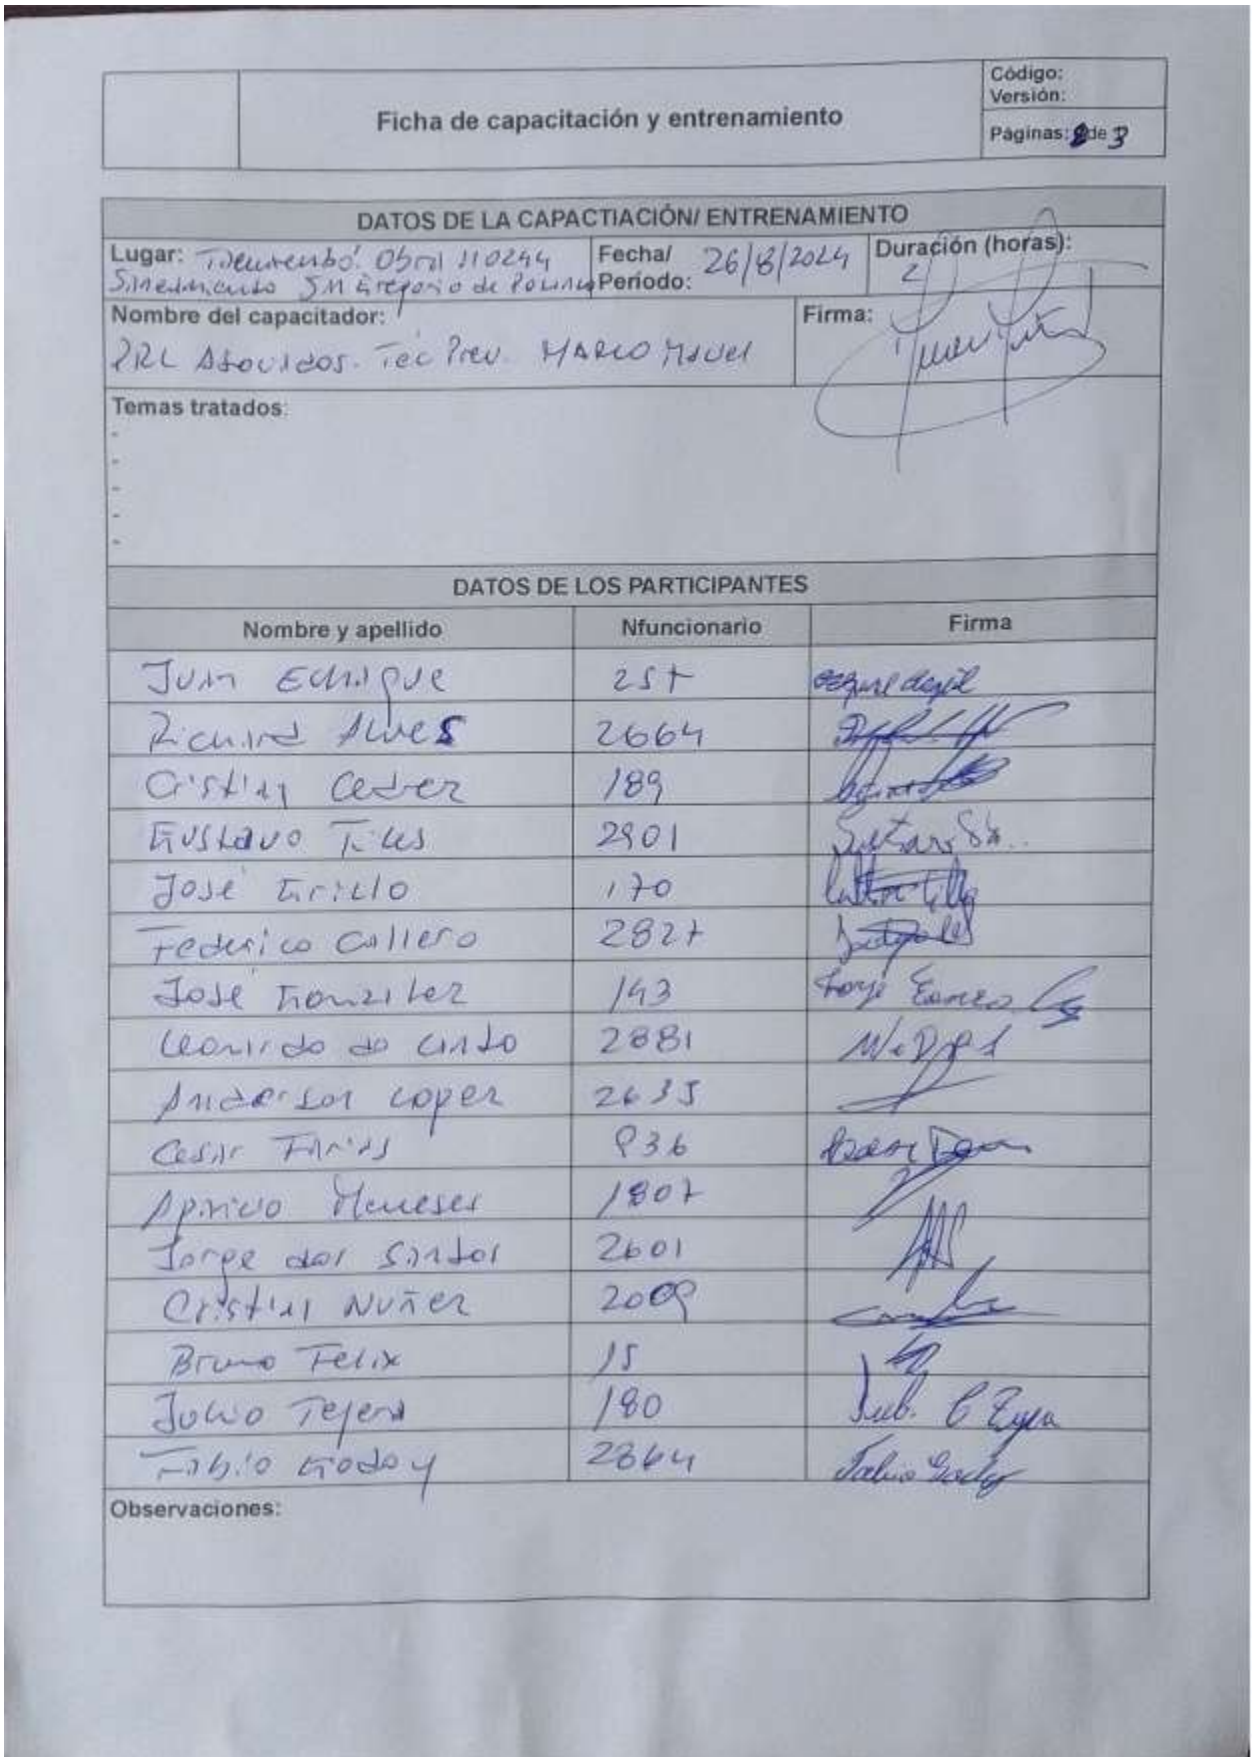 Ficha de capacitación y entrenamiento
Código:
Versión:
Páginas: 2 de 3
DATOS DE LA CAPACTIACIÓN/ ENTRENAMIENTO
Lugar: Tacuarembó. Obra 110244
Saneamiento San Gregorio de Polanco
Fecha/
Período: 26/8/2024
Duración (horas):
2
Nombre del capacitador:
PRL Asociados. Tec Prev. MARCO
Firma:
Temas tratados:
-
-
-
-
-
DATOS DE LOS PARTICIPANTES
Nombre y apellido Nfuncionario Firma
Juan Echague 257
Richard Alves 2664
Cristian 189
Gustavo 2901
José Grillo 170
Federico Callero 2827
José González 143
Leonardo do Canto 2881
Anderson Lopez 2635
Cesar Farias 936
Aparicio Meneses 1807
Jorge dos Santos 2601
Cristian Nuñez 2009
Bruno Felix 15
Julio Tejera 180
Fabio Godoy 2364 Fabio Godoy
Observaciones: